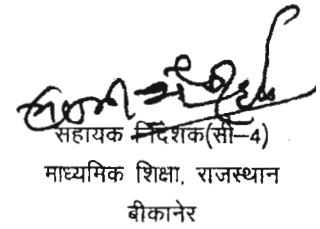 सहायक निदेशक(सी-4)
माध्यमिक शिक्षा, राजस्थान
बीकानेर